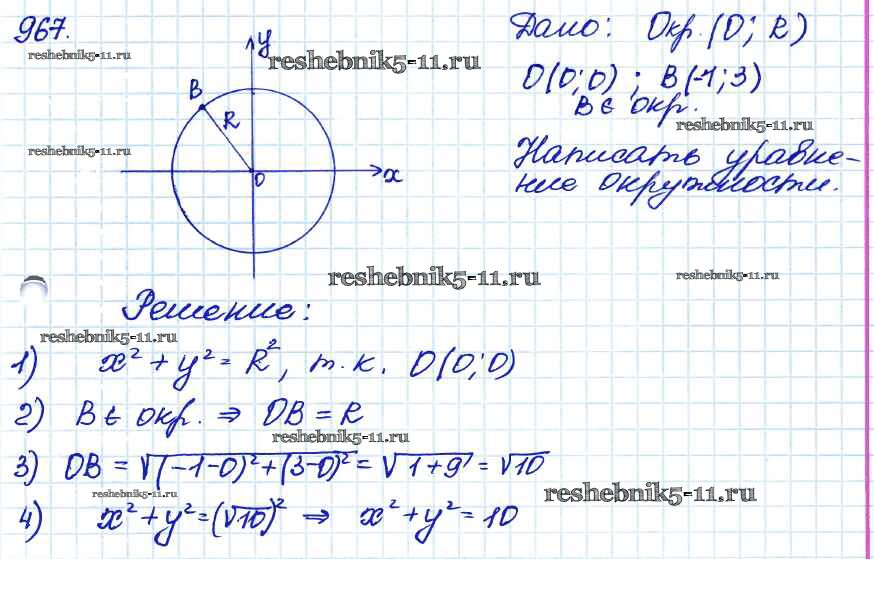 967.
reshebnik5-11.ru
y
reshebnik5-11.ru
B
R
O
x
reshebnik5-11.ru
Дано: Окр. (O; R)
O(0;0) ; B(-1;3)
B ∈ окр.
reshebnik5-11.ru
Написать уравне-
ние окружности.
reshebnik5-11.ru
reshebnik5-11.ru
Решение:
reshebnik5-11.ru
1) x² + y² = R², т.к. O(0;0)
2) B ∈ окр. ⇒ OB = R
reshebnik5-11.ru
3) OB = √((-1-0)²+(3-0)²) = √(1+9) = √10
reshebnik5-11.ru
reshebnik5-11.ru
4) x² + y² = (√10)² ⇒ x² + y² = 10